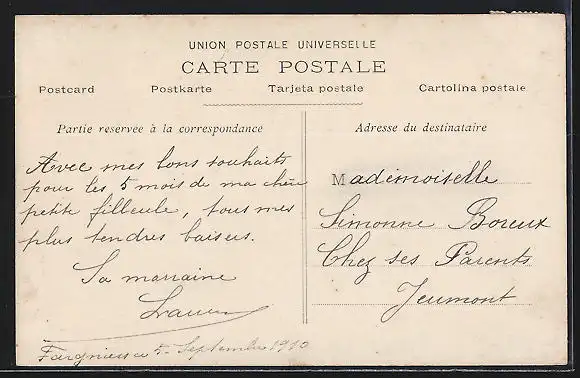 UNION POSTALE UNIVERSELLE
CARTE POSTALE
Postcard Postkarte Tarjeta postale Cartolina postale
Partie reservée à la correspondance
Avec mes bons souhaits
pour les 5 mois de ma chère
petite filleule, tous mes
plus tendres baisers.
Sa marraine
Adresse du destinataire
Mademoiselle
Simonne Boreux
Chez ses Parents
Jeumont
5 Septembre 1910